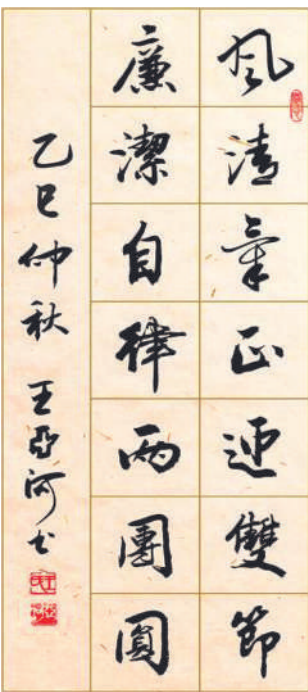 風清氣正迎雙節
廉潔自律兩團圓
乙巳仲秋 王亞河书